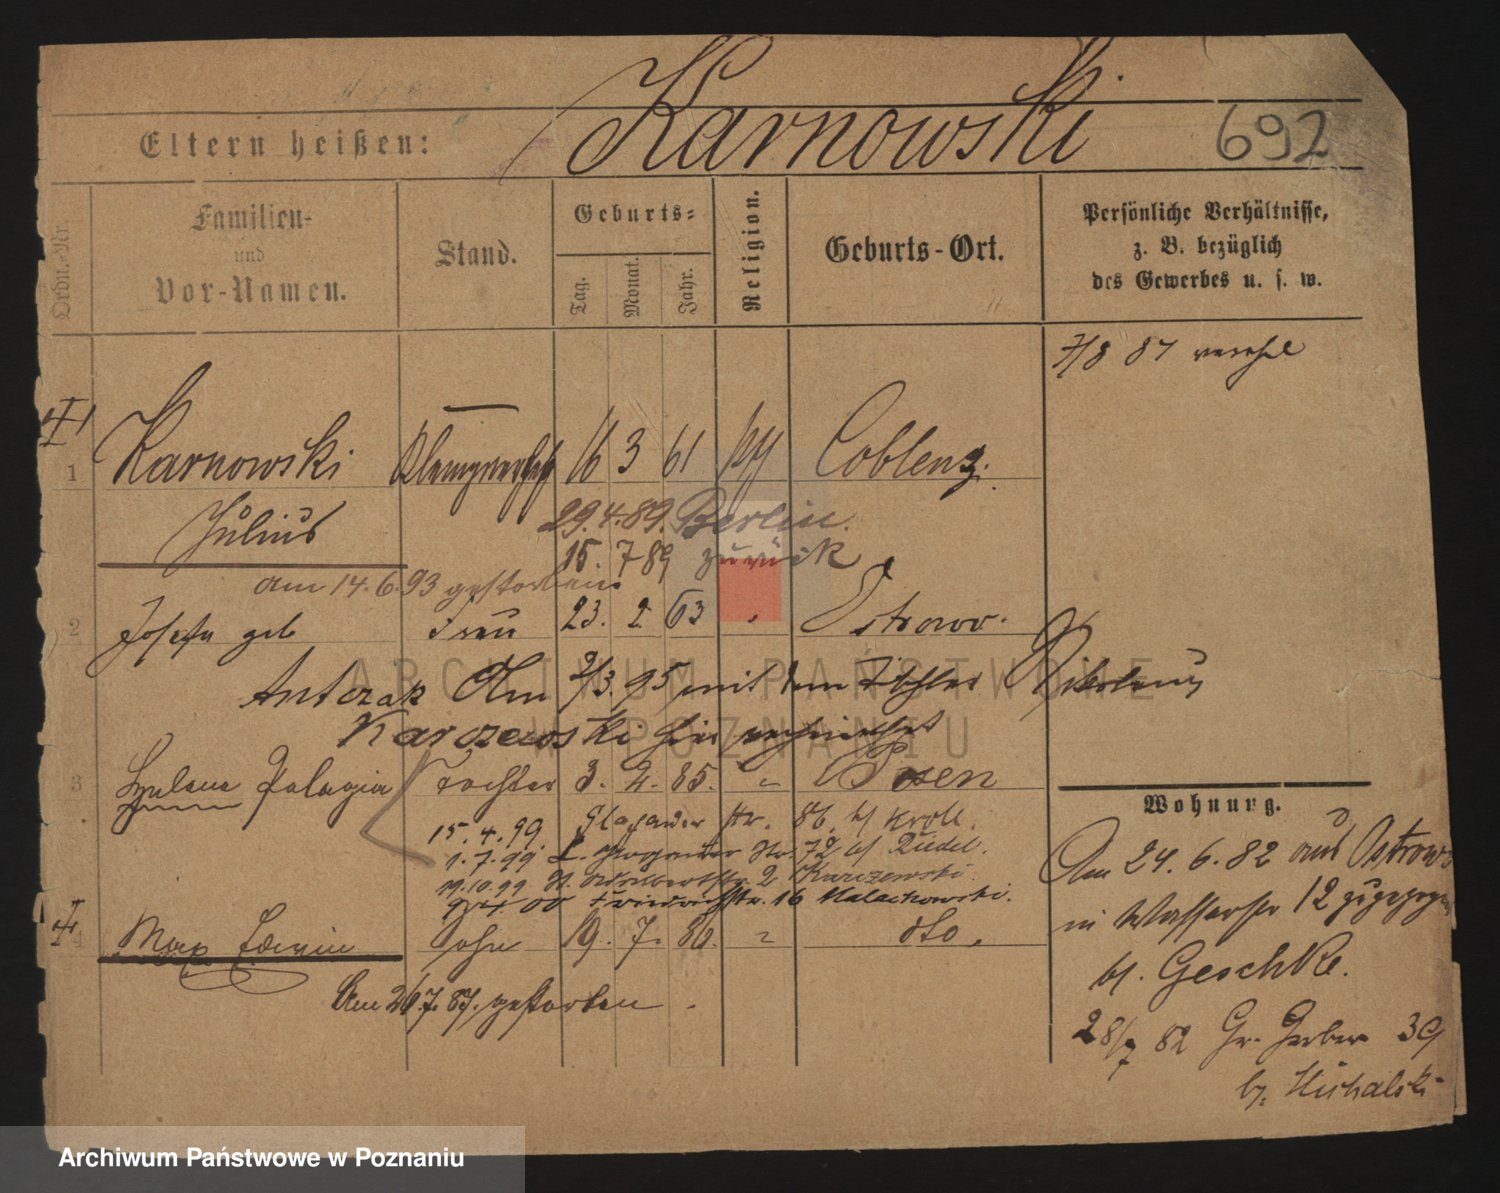 Karnowski
692
Eltern heißen:
Ordn.-Nr.
Familien- und Vor-Namen.
Stand.
Geburts-
Tag.
Monat.
Jahr.
Religion.
Geburts-Ort.
Persönliche Verhältnisse, z. B. bezüglich des Gewerbes u. s. w.
7/8 87
1 Karnowski 16 3 61 Coblenz.
Julius
29.4.89. Berlin.
15. 7 89 zurück
am 14.6.93 gestorben
2 Josefa geb Frau 23. 2. 63 " Ostrowo.
Antczak Am 2/3.95 mit dem Tischler
Karczewski hier
3 Pelagia Tochter 3. 2. 85. " Posen
15.4.99. Glogauer Str. 86. b/ Kroll.
1.7.99. Str. 72 b/ Riedel.
11.10.99 St. Adalbertstr. 2 Karczewski.
00 Friedrichstr. 16 Malachowski.
4 Max Edwin Sohn 19. 7. 86. " dto.
Am 26.7.87. gestorben.
Wohnung.
Am 24.6.82 aus Ostrowo
in Wasserstr 12 zugezogen
bl. Geschke.
28/7 82 Gr. Gerber 39
by. Michalski
ARCHIWUM PAŃSTWOWE
W POZNANIU
Archiwum Państwowe w Poznaniu